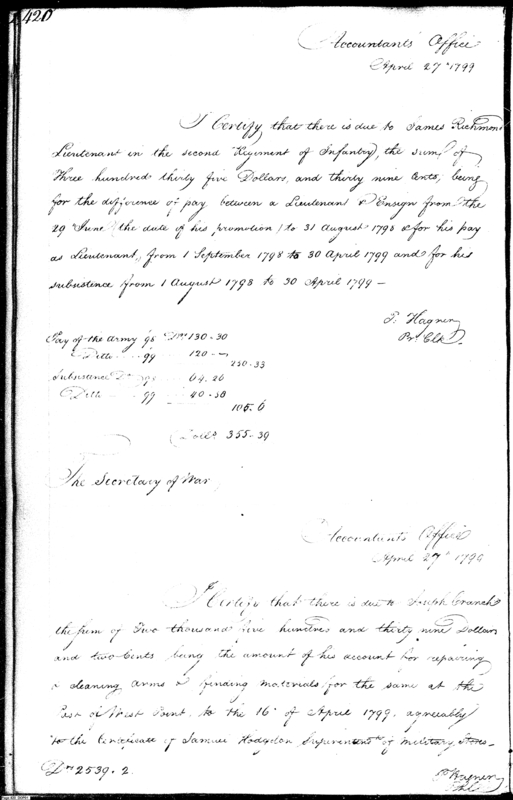 420
Accountants Office
April 27th 1799
I Certify, that there is due to James Richmond
Lieutenant in the second Regiment of Infantry, the sum of
Three hundred thirty five Dollars, and thirty nine Cents, being
for the difference of pay between a Lieutenant & Ensign from the
29 June, (the date of his promotion) to 31 August 1798 & for his pay
as Lieutenant, from 1 September 1798 to 30 April 1799 and for his
subsistence from 1 August 1798 to 30 April 1799 —
P. Hagner
Pr. Clk.
Pay of the Army 98 Drs 130.30
Ditto 99 120 —
250.33
Subsistence Do 98 64.26
Ditto 99 40.80
105.6
Dolls 355.39
The Secretary of War
Accountants Office
April 27th 1799
I Certify that there is due to Joseph Cranch
the sum of Two thousand five hundred and thirty nine Dollars
and two Cents being the amount of his account for repairing
& cleaning arms & finding materials for the same at the
Post of West Point, to the 16th of April 1799, agreeably
to the Certificate of Samuel Hodgdon Superintendt of Military Stores
Drs 2539.2.
P. Hagner
Clk.